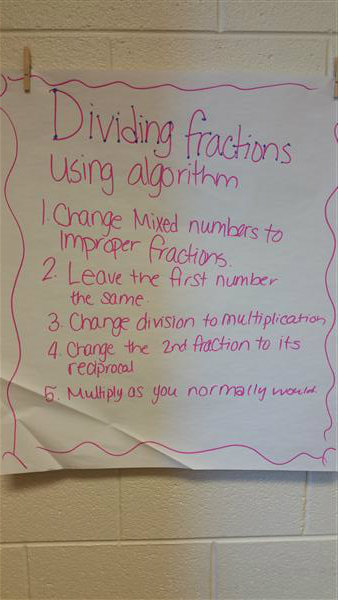 Dividing fractions
using algorithm
1. Change Mixed numbers to
Improper fractions.
2. Leave the first number
the same.
3. Change division to multiplication
4. Change the 2nd fraction to its
reciprocal
5. Multiply as you normally would.